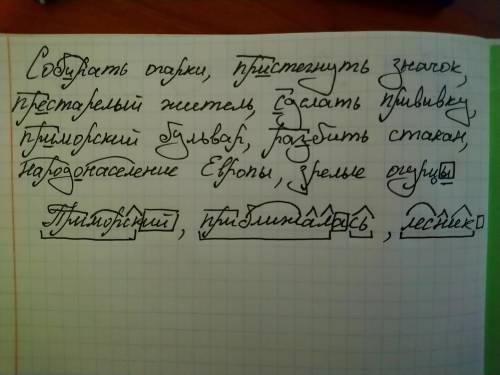 Собирать огарки, пристегнуть значок,
престарелый житель, сделать прививку,
приморский бульвар, разбить стакан,
народонаселение Европы, зрелые огурцы
Приморский, приближалась, лесник